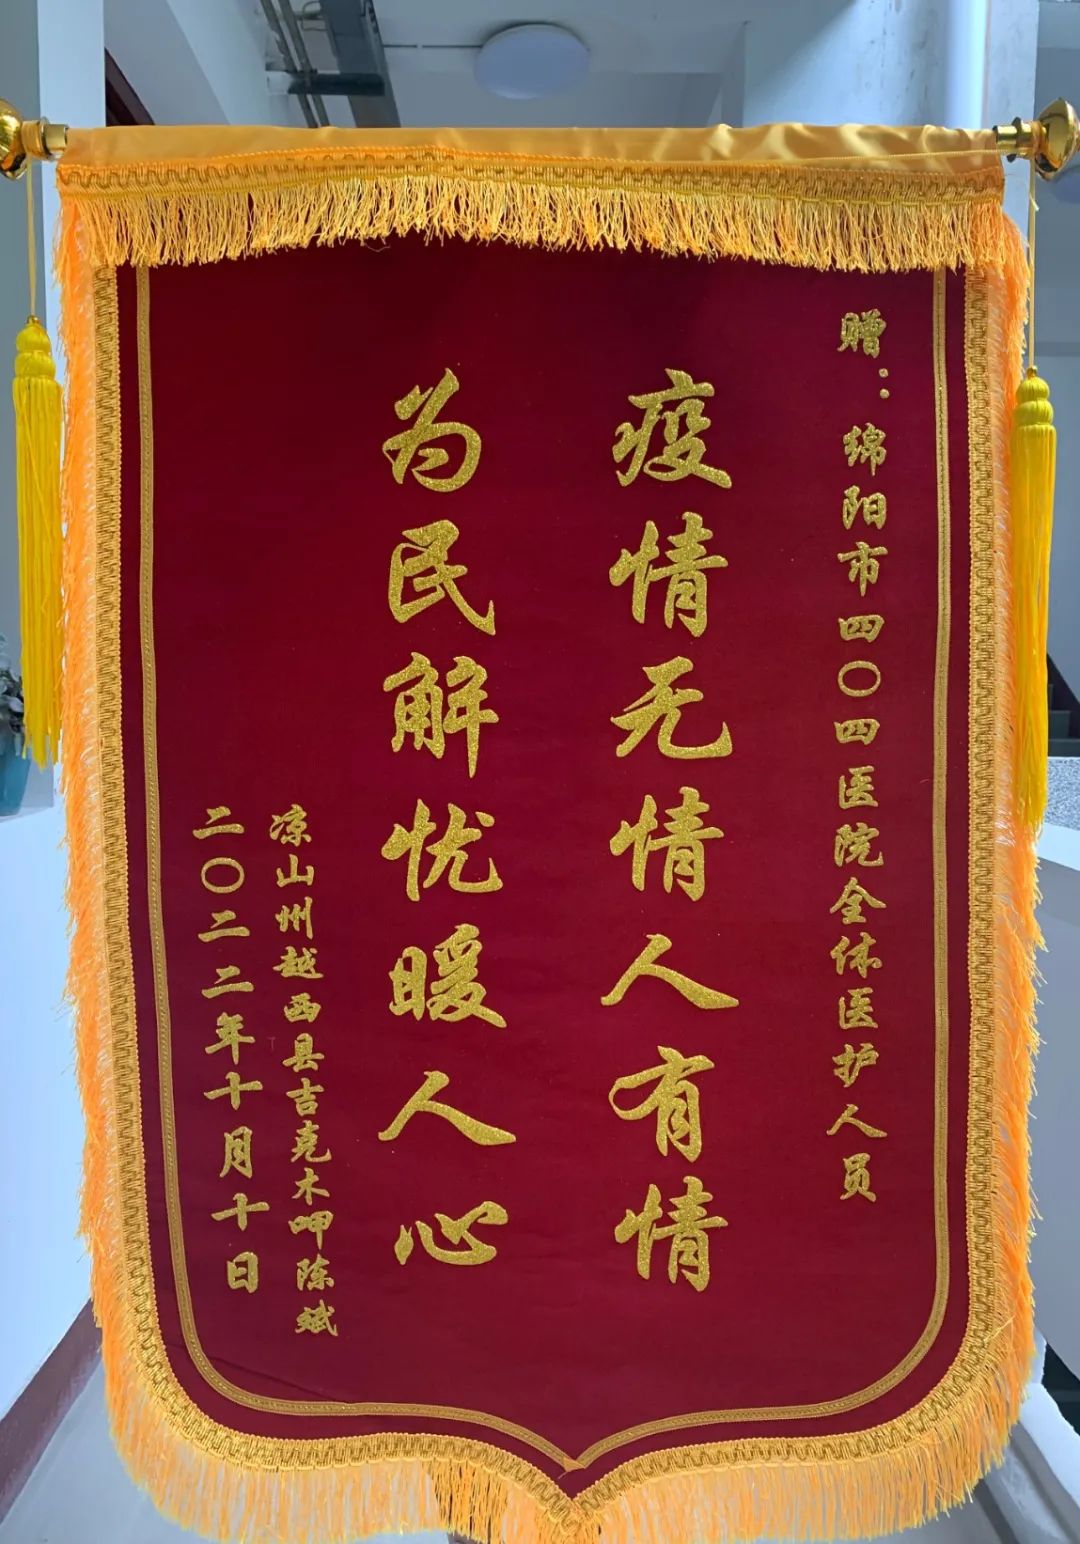 赠：绵阳市四〇四医院全体医护人员
疫情无情人有情
为民解忧暖人心
凉山州越西县吉克木呷陈斌
二〇二二年十月十日